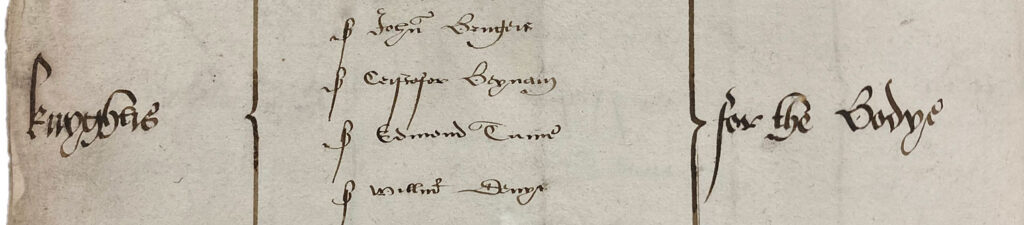 knyghtis
S John Brugeis
S Cristofor Beynam
S Edmond Tame
S Willm Denys
for the Bodye